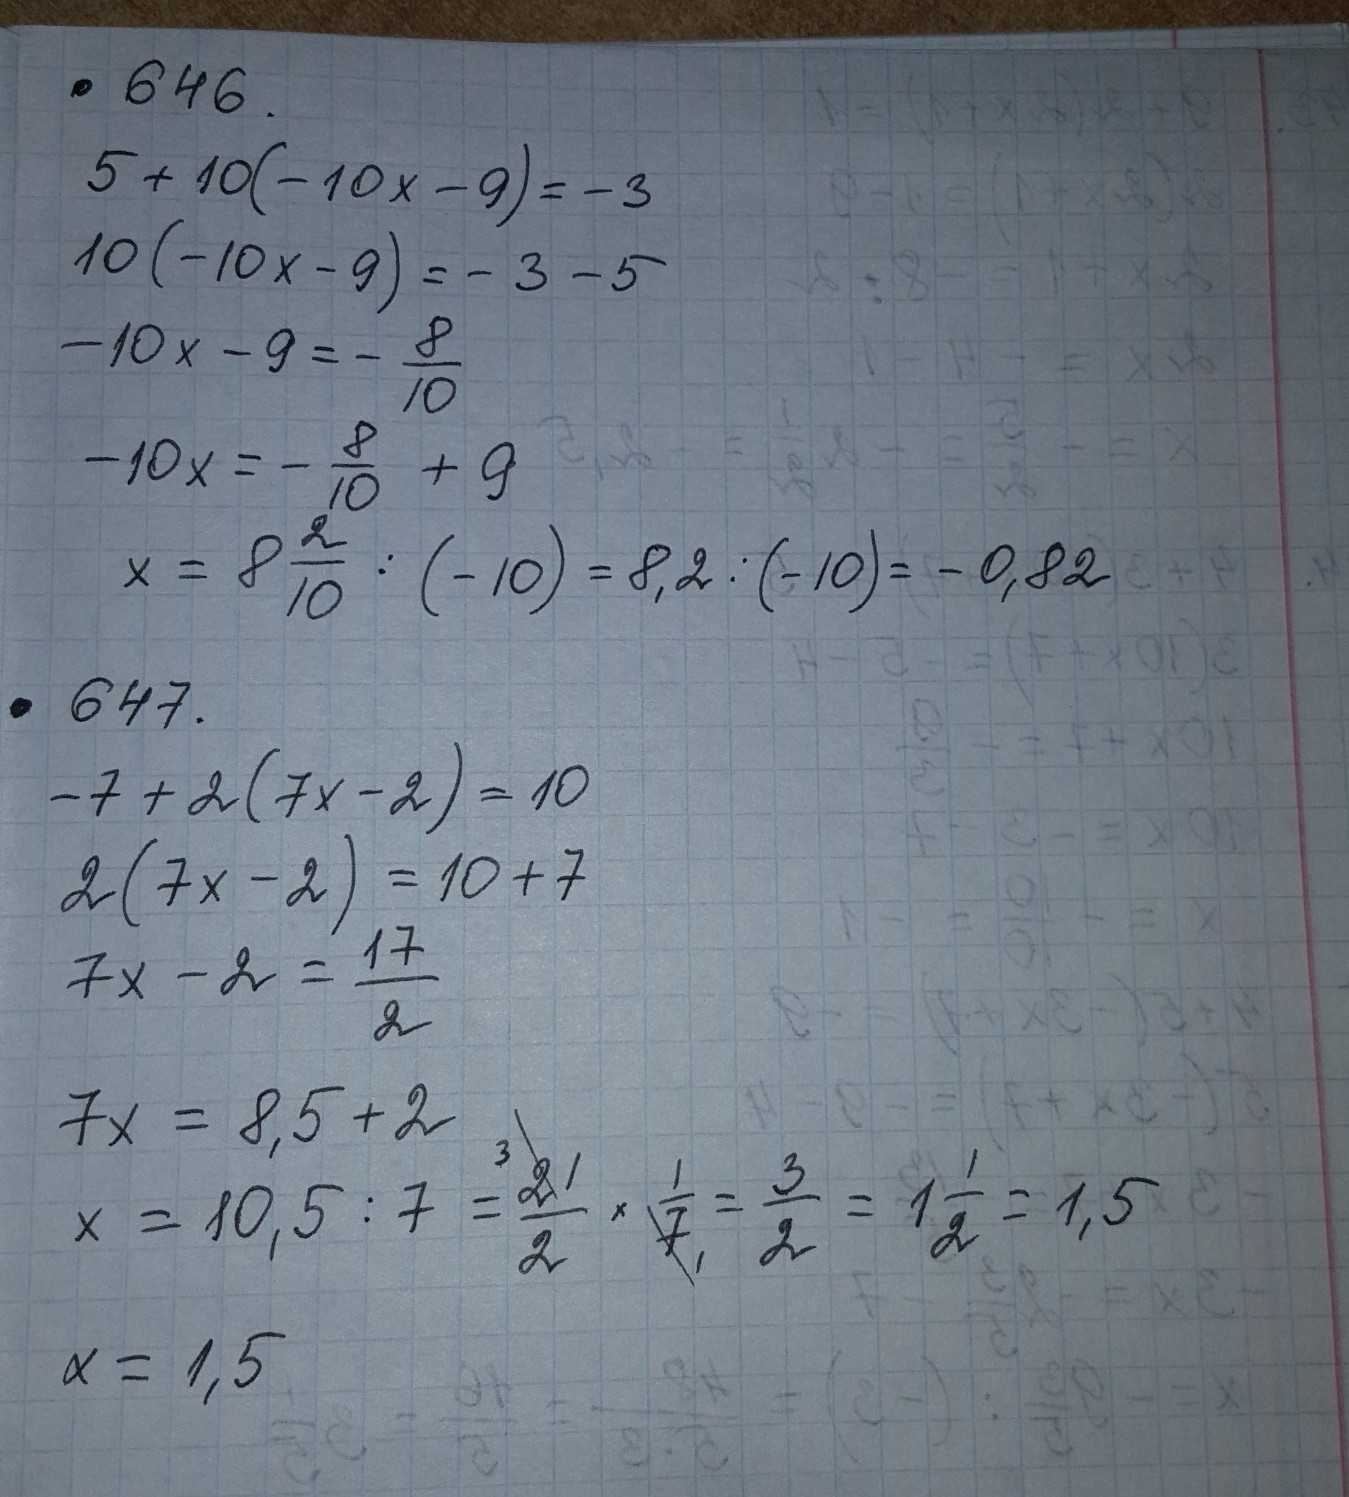 • 646.
5 + 10(-10x - 9) = -3
10(-10x - 9) = -3 - 5
-10x - 9 = - 8/10
-10x = - 8/10 + 9
x = 8 2/10 : (-10) = 8,2 : (-10) = -0,82
• 647.
-7 + 2(7x - 2) = 10
2(7x - 2) = 10 + 7
7x - 2 = 17/2
7x = 8,5 + 2
x = 10,5 : 7 = 3 21/2 × 1/7 1 = 3/2 = 1 1/2 = 1,5
x = 1,5